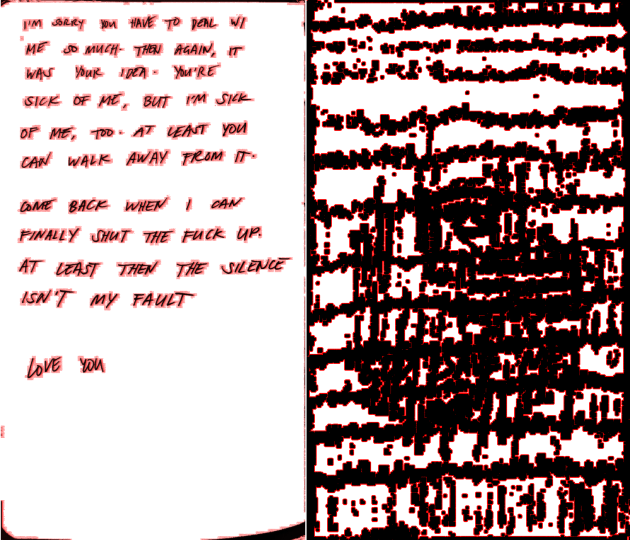 I'M SORRY YOU HAVE TO DEAL WI
ME SO MUCH. THEN AGAIN, IT
WAS YOUR IDEA. YOU'RE
SICK OF ME, BUT I'M SICK
OF ME, TOO. AT LEAST YOU
CAN WALK AWAY FROM IT.
COME BACK WHEN I CAN
FINALLY SHUT THE FUCK UP.
AT LEAST THEN THE SILENCE
ISN'T MY FAULT
LOVE YOU